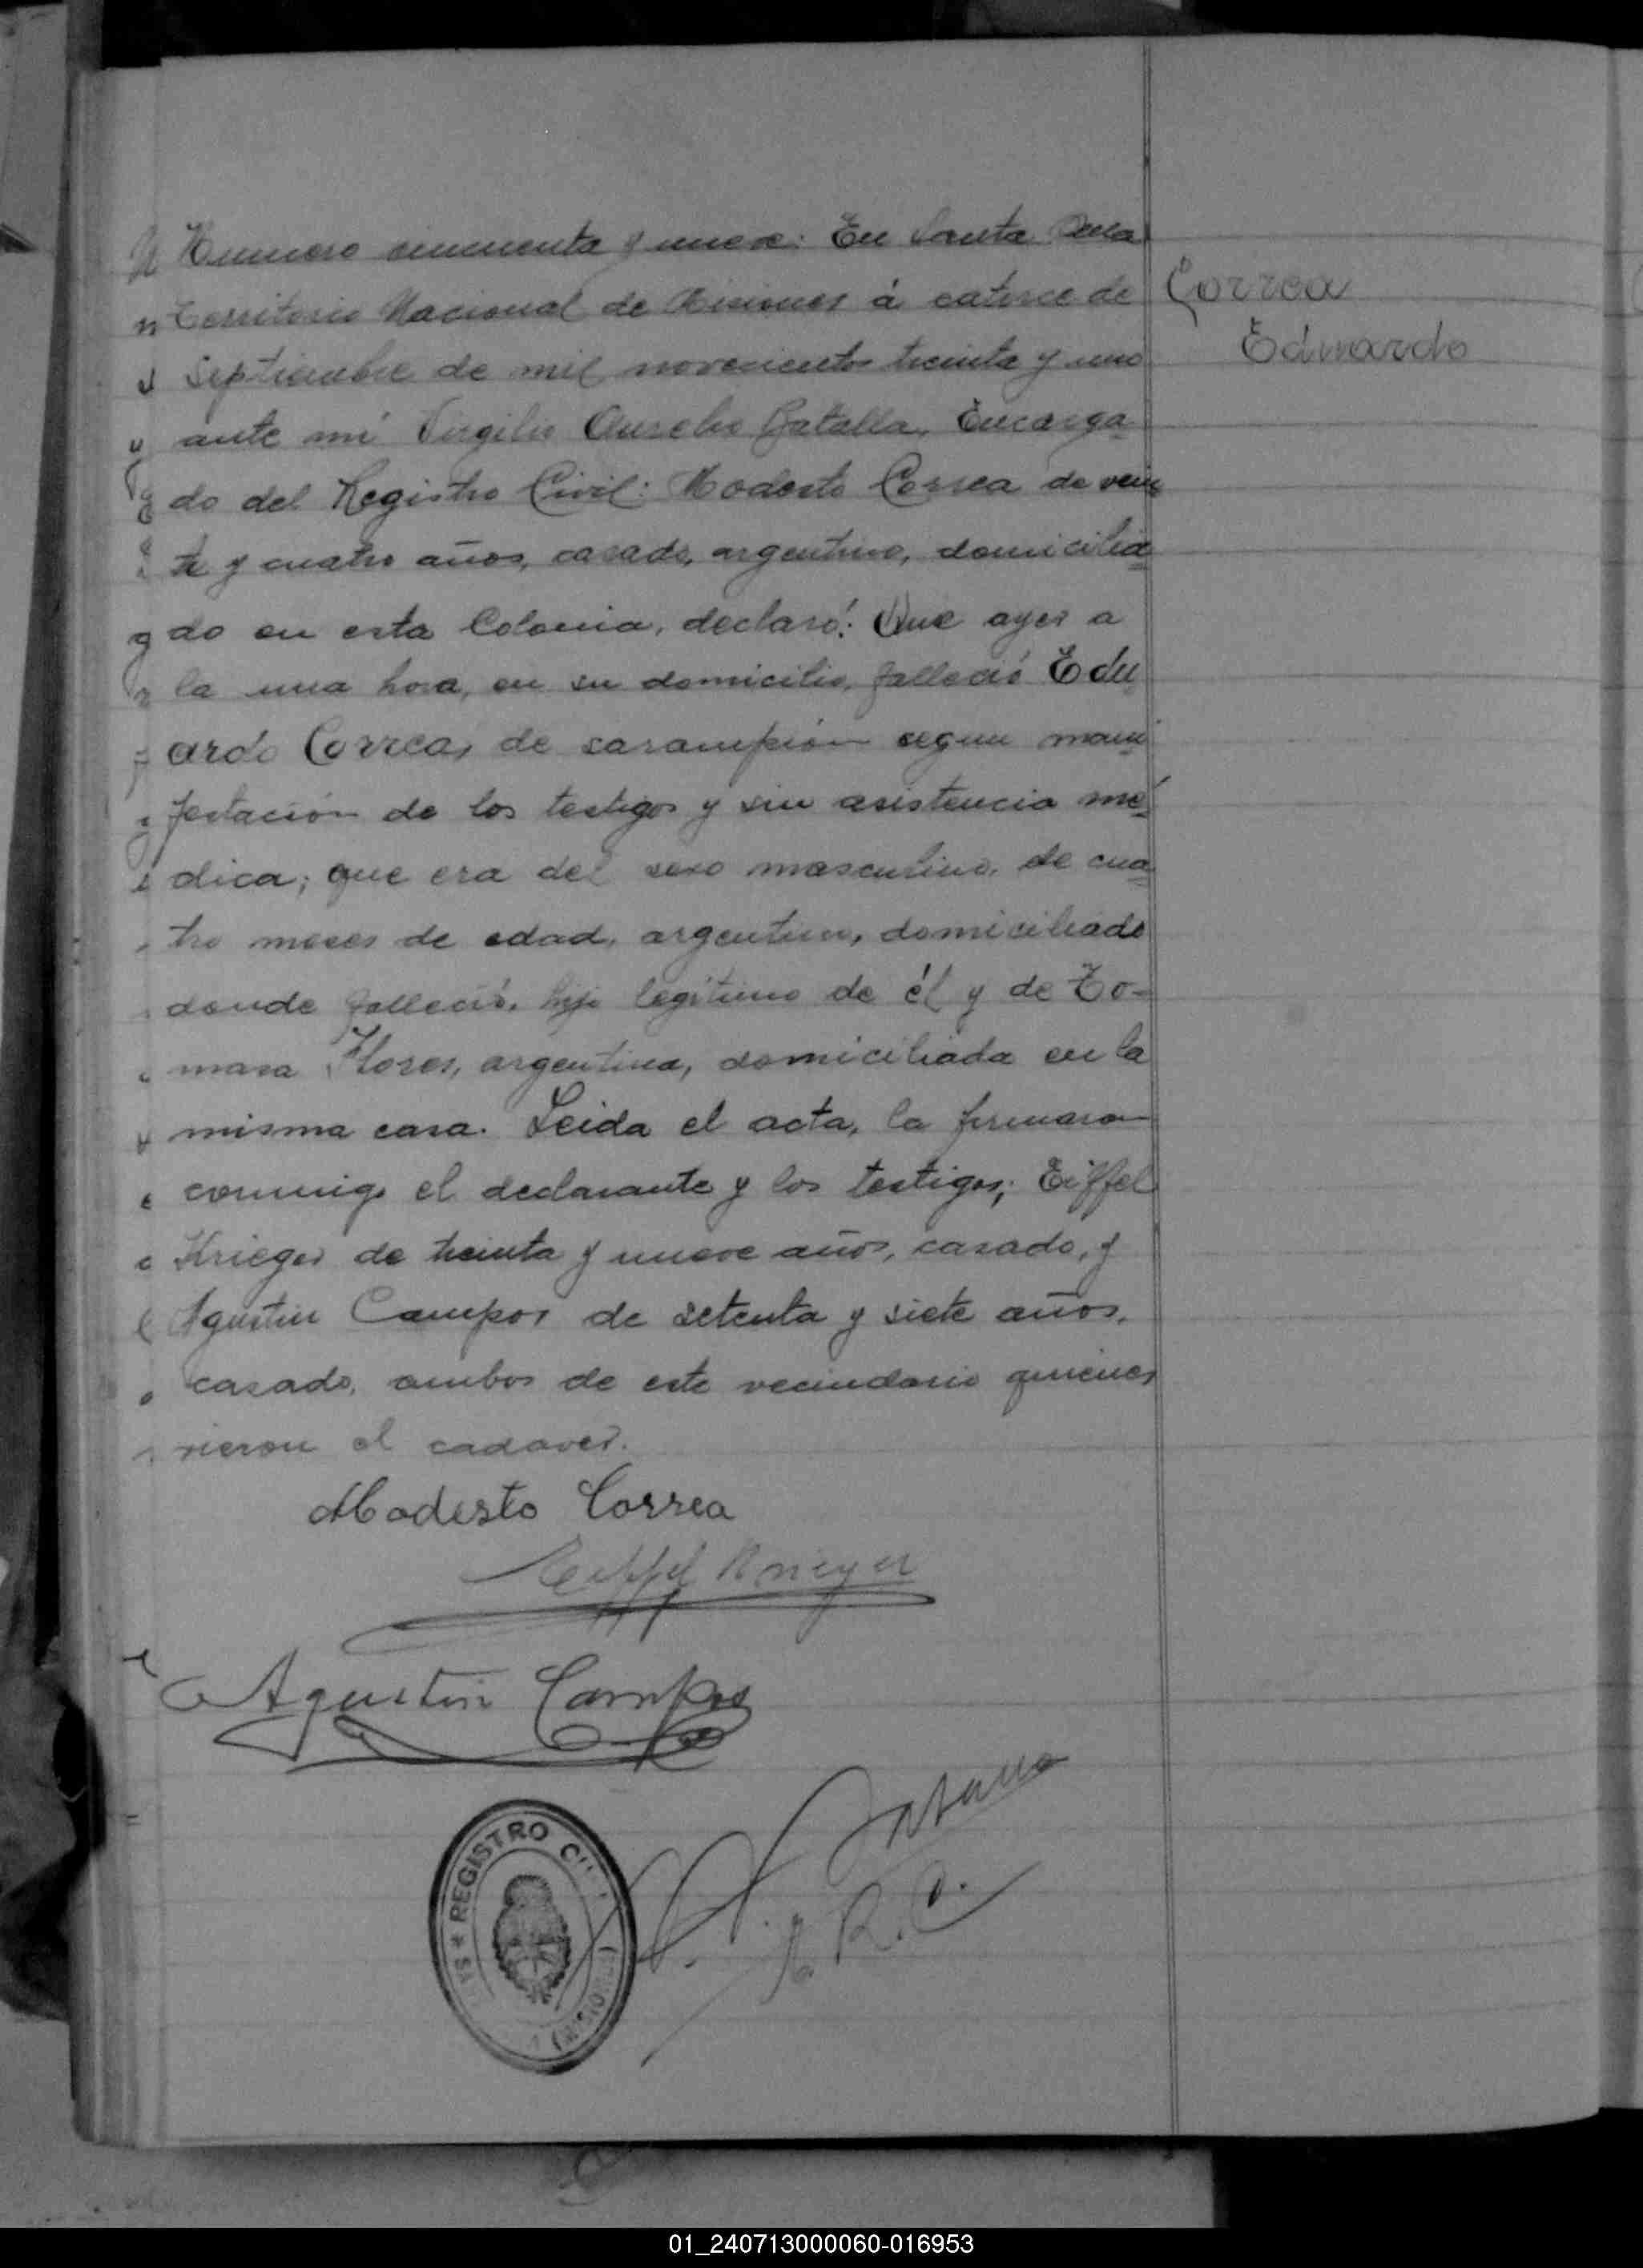 Numero cincuenta y nueve: En Santa Ana
Territorio Nacional de Misiones á catorce de
Septiembre de mil novecientos treinta y uno
ante mí Virgilio Aurelio Batalla, Encarga
do del Registro Civil: Modesto Correa de vein
te y cuatro años, casado, argentino, domicilia
do en esta Colonia, declaró: Que ayer a
la una hora, en su domicilio, falleció Edu
ardo Correa, de sarampión segun mani
festación de los testigos y sin asistencia mé
dica; que era del sexo masculino, de cua
tro meses de edad, argentino, domiciliado
donde falleció, hijo legítimo de él y de To-
masa Flores, argentina, domiciliada en la
misma casa. Leida el acta, la firmaron
conmigo el declarante y los testigos; Eiffel
Krieger de treinta y nueve años, casado, y
Agustin Campos de setenta y siete años,
casado, ambos de este vecindario quienes
vieron el cadaver.
Correa
Eduardo
Modesto Correa
Eiffel Krieger
Agustin Campos
Batalla
R. C.
REGISTRO CIVIL
(MISIONES)
01_240713000060-016953